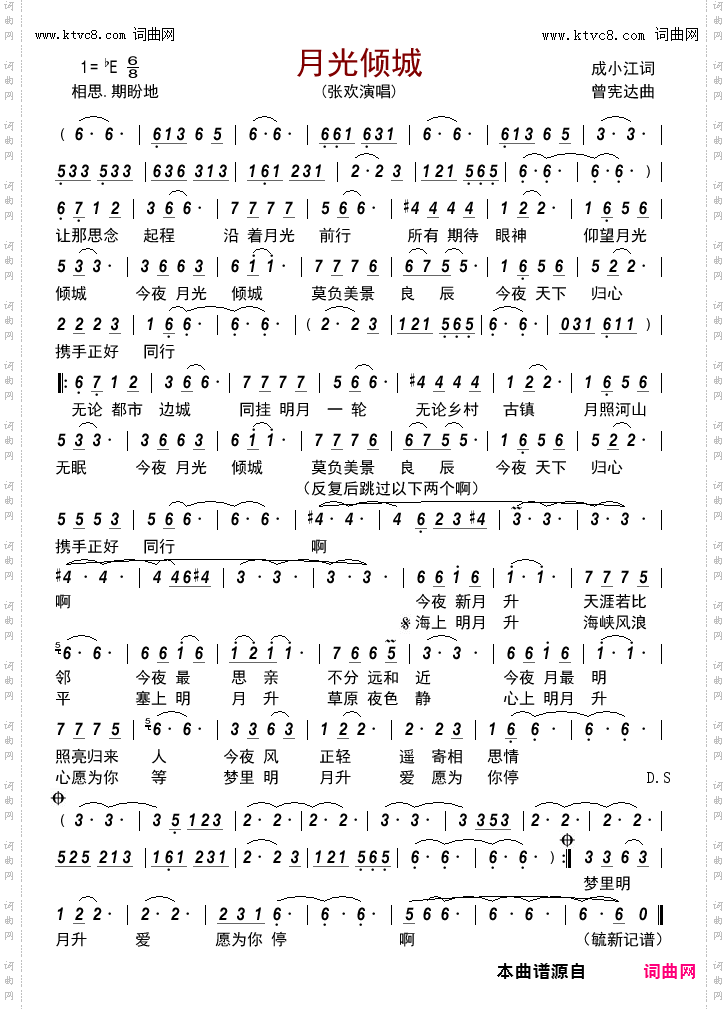 www.ktvc8.com 词曲网 www.ktvc8.com 词曲网
月光倾城
1=♭E 6/8 成小江词
相思.期盼地 (张欢演唱) 曾宪达曲
( 6· 6· | 613 6 5 | 6·6· | 661 631 | 6· 6· | 613 6 5 | 3· 3· |
533 533 | 636 313 | 161 231 | 2·2 3 | 121 565 | 6· 6· | 6· 6· ) |
6 7 1 2 | 3 6 6· | 7 7 7 7 | 5 6 6· | #4 4 4 4 | 1 2 2· | 1 6 5 6
让那思念 起程 沿 着月光 前行 所有 期待 眼神 仰望月光
5 3 3· | 3 6 6 3 | 6 i i· | 7 7 7 6 | 6 7 5 5 | 1 6 5 6 | 5 2 2· |
倾城 今夜 月光 倾城 莫负美景 良 辰 今夜 天下 归心
2 2 2 3 | 1 6 6· | 6· 6· | ( 2· 2 3 | 121 565 | 6· 6· | 031 611 ) |
携手正好 同行
|: 6 7 1 2 | 3 6 6· | 7 7 7 7 | 5 6 6· | #4 4 4 4 | 1 2 2· | 1 6 5 6
无论 都市 边城 同挂 明月 一 轮 无论乡村 古镇 月照河山
5 3 3· | 3 6 6 3 | 6 i i· | 7 7 7 6 | 6 7 5 5 | 1 6 5 6 | 5 2 2· |
无眠 今夜 月光 倾城 莫负美景 良 辰 今夜 天下 归心
(反复后跳过以下两个啊)
5 5 5 3 | 5 6 6· | 6· 6· | #4· 4· | 4 6 2 3 #4 | 3· 3· | 3· 3· |
携手正好 同行 啊
#4 · 4 · | 4 46#4 | 3· 3· | 3· 3· | 6 6 i 6 | i· i· | 7 7 7 5
啊 今夜 新月 升 天涯若比
海上 明月 升 海峡风浪
5 6· 6· | 6 6 i 6 | i 2 i i· | 7 6 6 5 | 3· 3· | 6 6 i 6 | i· i· |
邻 今夜 最 思 亲 不分 远和 近 今夜 月最 明
平 塞上 明 月 升 草原 夜色 静 心上 明月 升
7 7 7 5 | 5 6· 6· | 3 3 6 3 | 1 2 2· | 2· 2 3 | 1 6 6· | 6· 6· |
照亮归来 人 今夜 风 正轻 遥 寄相 思情
心愿为你 等 梦里 明 月升 爱 愿为 你停 D.S
( 3· 3· | 3 5 123 | 2· 2· | 2· 2· | 3· 3· | 3 353 | 2· 2· | 2· 2· |
525 213 | 161 231 | 2· 2 3 | 121 565 | 6· 6· | 6· 6· ) :| 3 3 6 3
梦里明
1 2 2· | 2· 2· | 2 3 1 6· | 6· 6· | 5 6 6 6· | 6· 6· | 6 0 ||
月升 爱 愿为你 停 啊 (毓新记谱)
本曲谱源自 词曲网